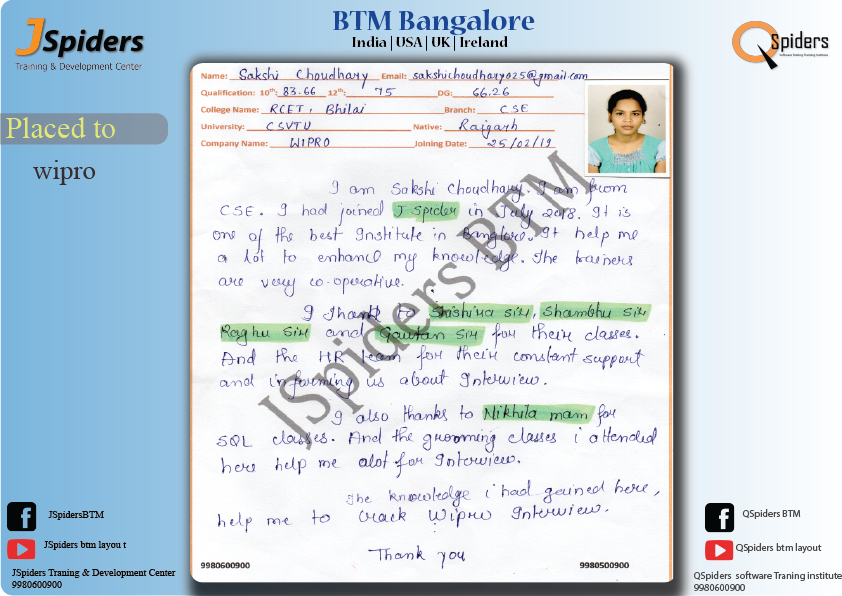 JSpiders
Training & Development Center
BTM Bangalore
India | USA | UK | Ireland
QSpiders
Software Training Training Institute
Placed to
wipro
Name: Sakshi Choudhary Email: sakshichoudhary025@gmail.com
Qualification: 10th: 83.66 12th: 75 DG: 66.26
College Name: RCET, Bhilai Branch: CSE
University: CSVTU Native: Raigarh
Company Name: WIPRO Joining Date: 25/02/19
I am Sakshi Choudhary. I am from
CSE. I had joined J Spider in July 2018. It is
one of the best Institute in Banglore. It help me
a lot to enhance my knowledge. The trainers
are very co-operative.
I thank to Shishira sir, Shambhu sir
Raghu sir and Gautan sir for their classes.
And the HR team for their constant support
and informing us about Interview.
I also thanks to Nikhila mam for
SQL classes. And the grooming classes i attended
here help me alot for Interview.
The knowledge i had gained here,
help me to crack Wipro Interview.
Thank you
JSpiders BTM
9980600900 9980500900
JSpidersBTM
JSpiders btm layou t
JSpiders Traning & Development Center
9980600900
QSpiders BTM
QSpiders btm layout
QSpiders software Traning institute
9980600900